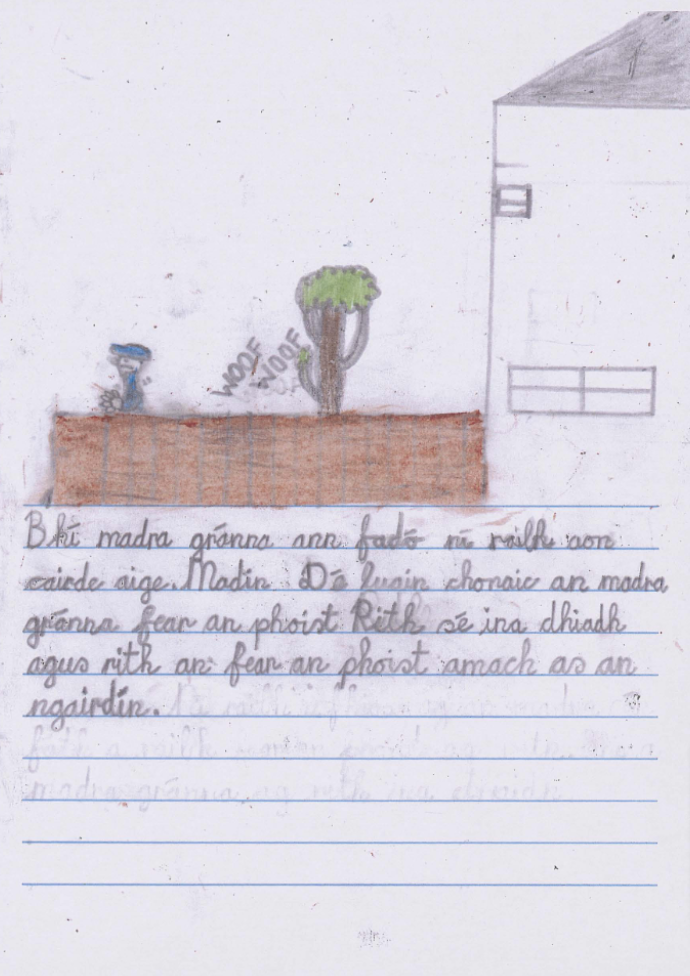 WOOF
WOOF
Bhí madra gránna ann fadó ní raibh aon
cairde aige. Madin Dé luain chonaic an madra
gránna fear an phoist Rith sé ina dhiadh
agus rith an fear an phoist amach as an
ngairdín.